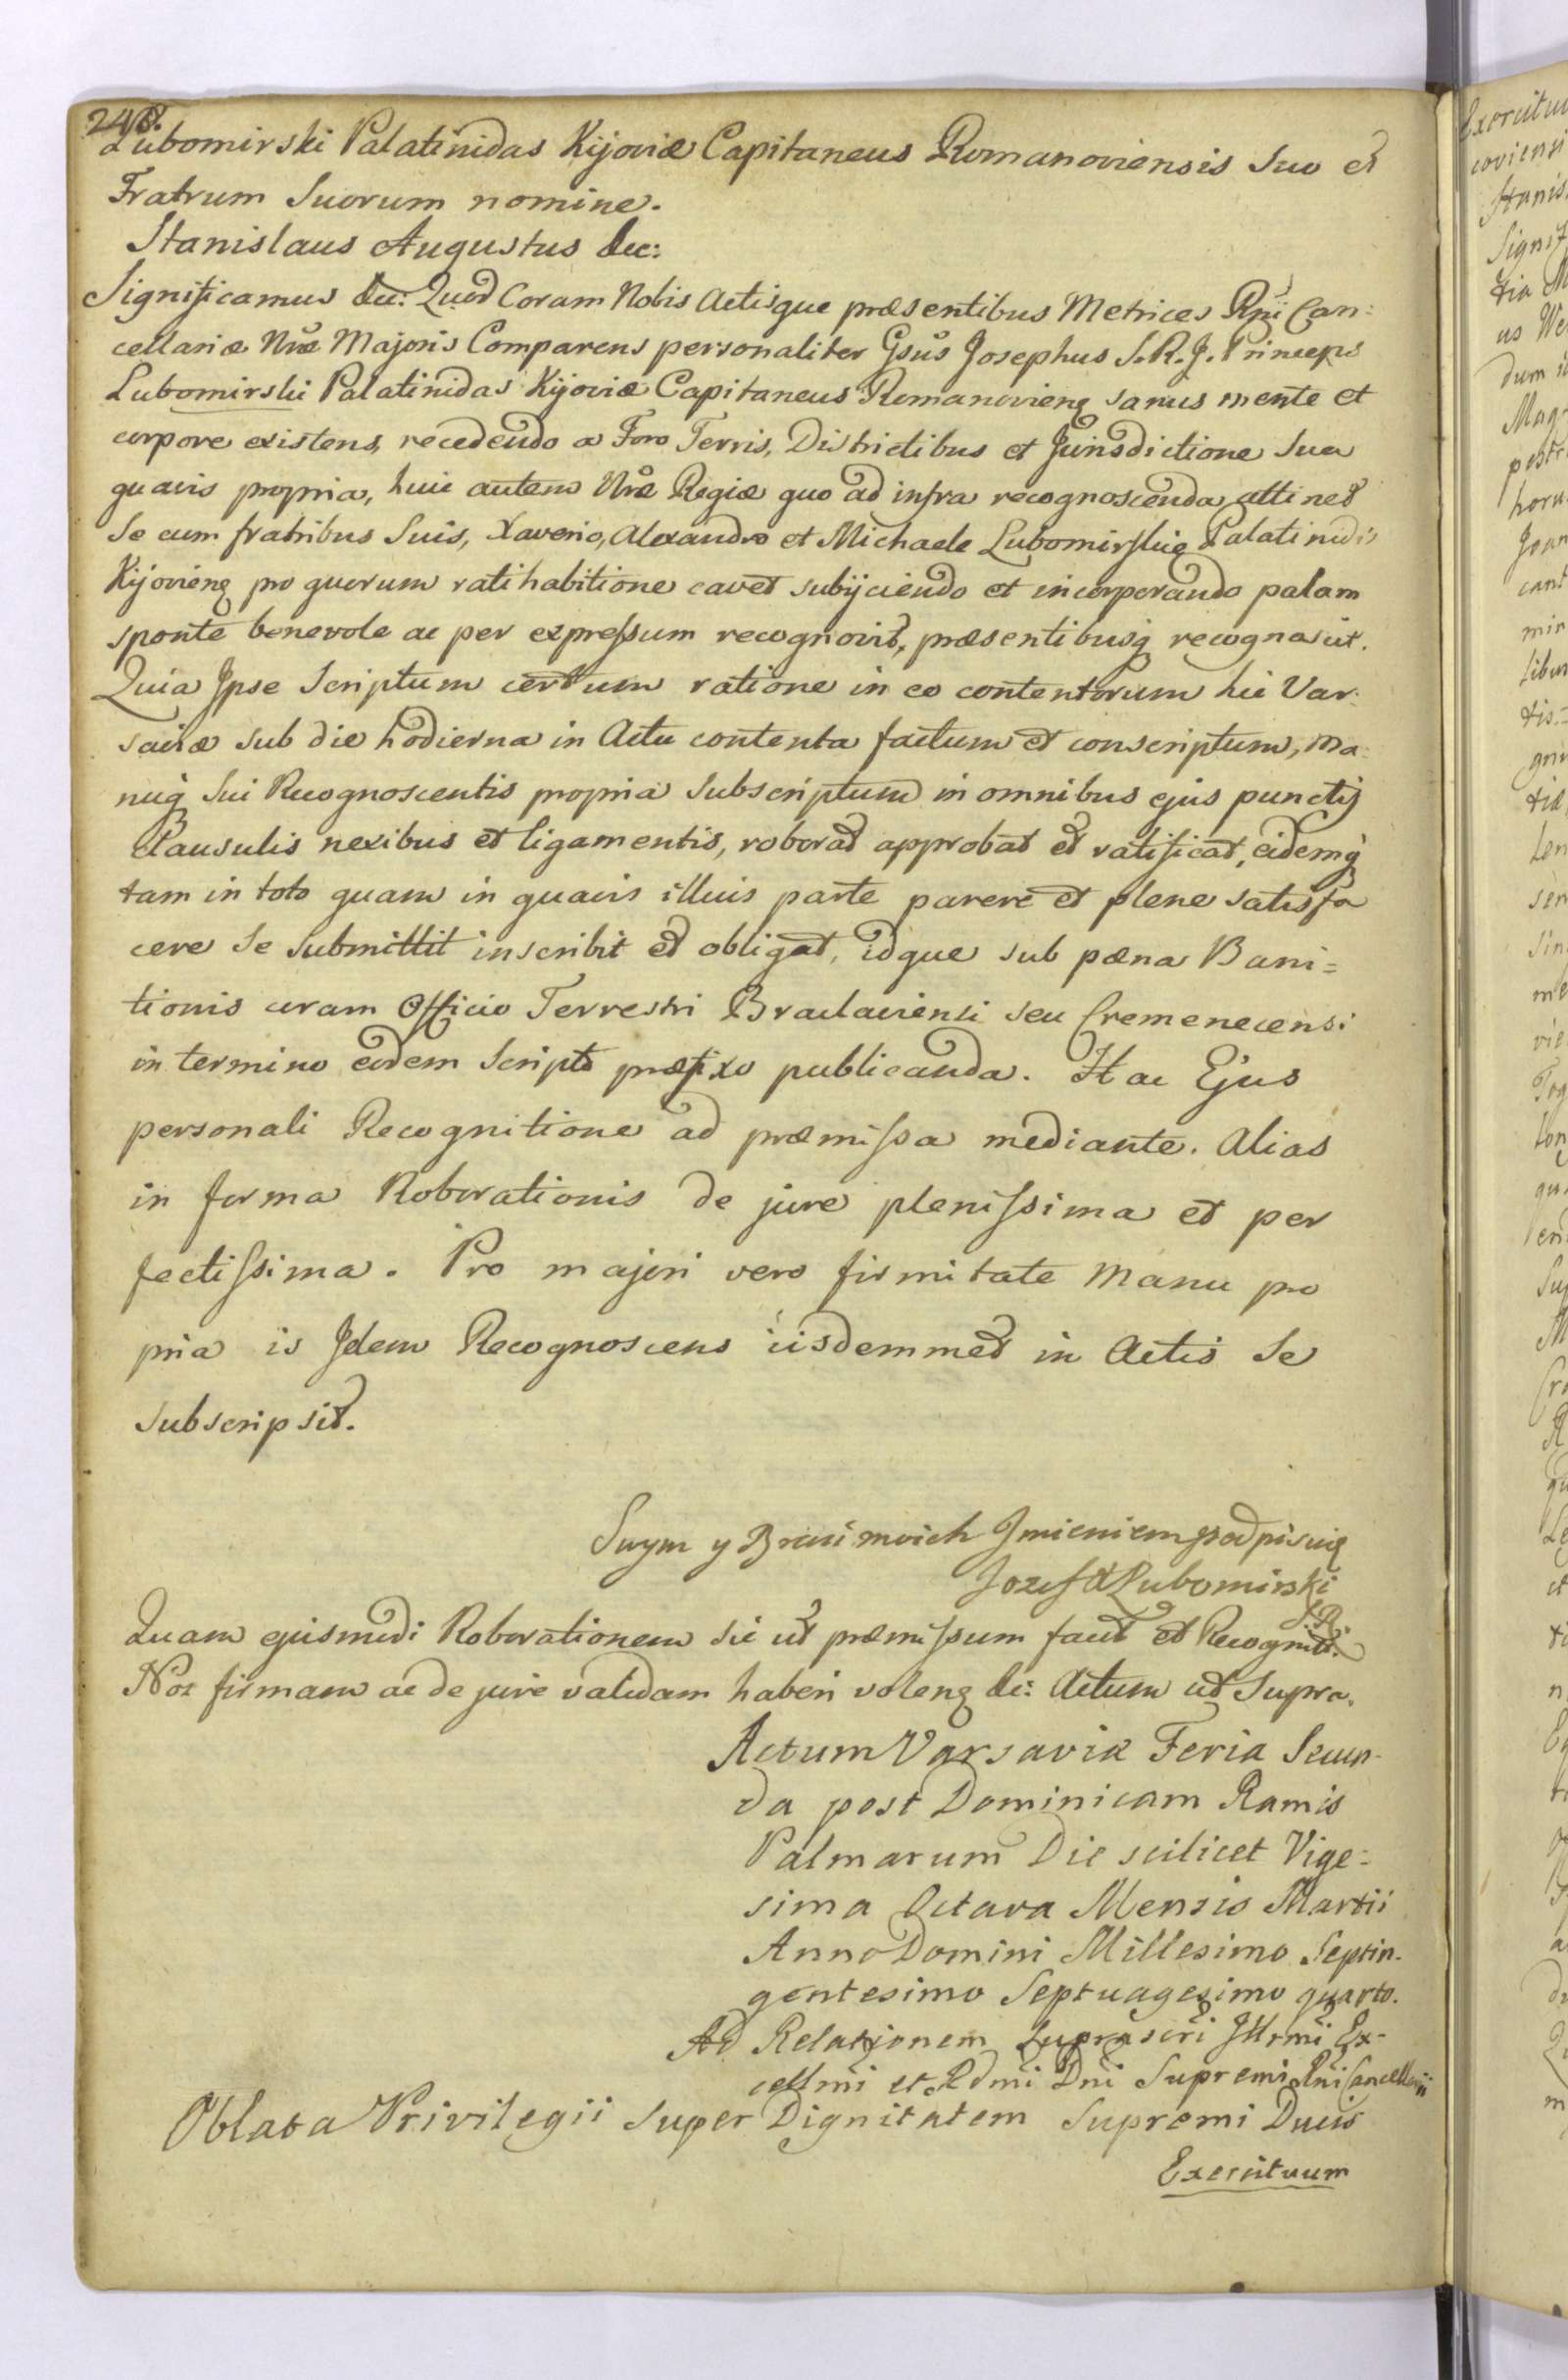 248.
Lubomirski Palatinidas Kijoviæ Capitaneus Romanoviensis Suo et
Fratrum Suorum nomine.
Stanislaus Augustus &c:
Significamus &c: Quod Coram Nobis Actisque præsentibus Metrices Rni Can=
cellariæ Nræ Majoris Comparens personaliter Gsus Josephus S. R. J. Princeps
Lubomirski Palatinidas Kijoviæ Capitaneus Romanovienę sanus mente et
corpore existens, recedendo a Foro Terris, Districtibus et Jurisdictione Sua
quavis propria, huic autem Nræ Regiæ quo ad infra recognoscenda attinet
Se cum fratribus Suis, Xaverio, Alexandro et Michaele Lubomirskię Palatinidis
Kijovienę pro quorum ratihabitione cavet subijciendo et incorporando palam
sponte benevole ac per expressum recognovit, præsentibusq recognascit.
Quia Jpse Scriptum certum ratione in eo contentorum hic Var-
saviæ sub die hodierna in Actu contenta factum et conscriptum, Ma-
nuq Sui Recognoscentis propria Subscriptum in omnibus ejus punctis
Clausulis nexibus et ligamentis, roborat approbat et ratificat, eidemq
tam in toto quam in quavis illius parte parere et plene satisfa
cere Se Submittit inscribit et obligat, idque sub pæna Bani=
tionis coram Officio Terrestri Braclaviensi seu Cremenecensi
in termino eodem Scripto præfixo publicanda. Hac Ejus
personali Recognitione ad præmissa mediante. Alias
in forma Roborationis de jure plenissima et per
fectissima. Pro majori vero firmitate Manu pro
pria is Jdem Recognoscens iisdemmet in Actis Se
Subscripsit.
Swym y Braci moich Jmieniem podpisuię
Jozef X Lubomirski
Quam ejusmodi Roborationem sic ut præmissum facit et Recognit.
Nos firmam ac de jure validam haberi volenę &c: Actum ut Supra.
Actum Varsaviæ Feria Secun-
da post Dominicam Ramis
Palmarum Die scilicet Vige-
sima Octava Mensis Martii
Anno Domini Millesimo Septin-
gentesimo Septuagesimo quarto.
Ad Relationem Suprascri Jllrmi Ex-
cellmi et Rdmi Dni Supremi Rni Cancellarii
Oblata Privilegii super Dignitatem Supremi Ducis
Exercituum